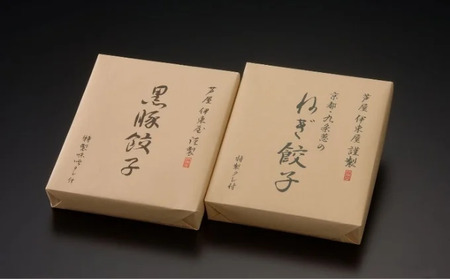 芦屋 伊東屋 謹製
黒豚餃子
特製味噌ダレ付
芦屋 伊東屋 謹製
京都・九条葱の
ねぎ餃子
特製タレ付